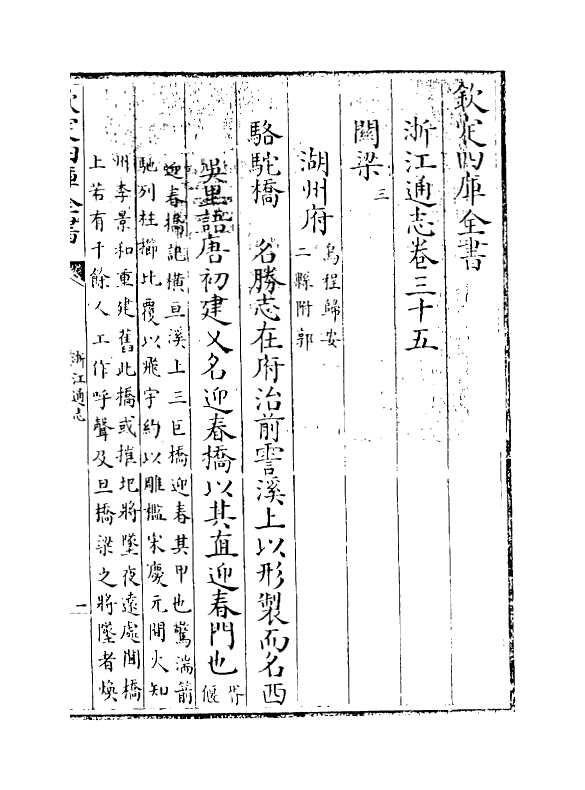 欽定四庫全書
浙江通志卷三十五
關梁三
湖州府烏程歸安
二縣附郭
駱駝橋 名勝志在府治前霅溪上以形製而名西
吳里語唐初建又名迎春橋以其直迎春門也
偃
迎春橋記橫亘溪上三巨橋迎春其甲也驚湍箭
馳列柱櫛比覆以飛宇約以雕檻宋慶元間火知
州李景和重建舊此橋或摧圮將墜夜遠處聞橋
上若有千餘人工作呼聲及旦橋梁之將墜者煥
欽定四庫全書
浙江通志
一